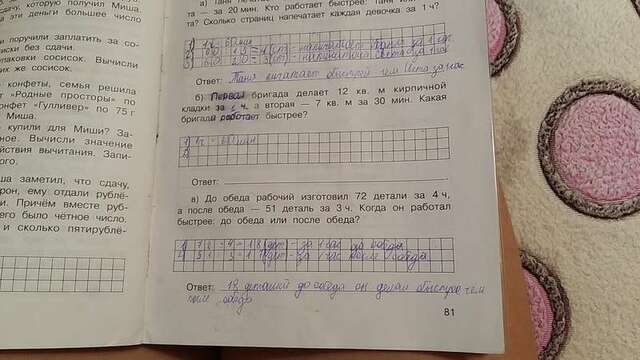 , которую получил Миша,
а эти деньги большее число
и поручили заплатить за со-
писки без сдачи.
упаковки сосисок. Вычисли
их же сосисок.
конфеты, семья решила
«Родные просторы» по
конфет «Гулливер» по 75 г
Миша.
купили для Миши? За-
ное. Вычисли значение
действия вычитания. Запи-
ого.
ша заметил, что сдачу,
рон, ему отдали рублё-
и. Причём вместе руб-
его было чётное число.
и сколько пятирублё-
та — за 20 мин. Кто работает быстрее: Таня или
та? Сколько страниц напечатает каждая девочка за 1 ч?
1) 1ч = 60 мин
Ответ: Таня печатает быстрей чем Света за час
б) Первая бригада делает 12 кв. м кирпичной
кладки за 1 ч, а вторая — 7 кв. м за 30 мин. Какая
бригада работает быстрее?
1) 1ч = 60 мин
2)
Ответ:
в) До обеда рабочий изготовил 72 детали за 4 ч,
а после обеда — 51 деталь за 3 ч. Когда он работал
быстрее: до обеда или после обеда?
1) 72 : 4 = 18 дет – за 1 час до обеда
2) 51 : 3 = 17 дет – за 1 час после обеда
Ответ: 18 деталей до обеда он делал быстрее чем
после обеда
81